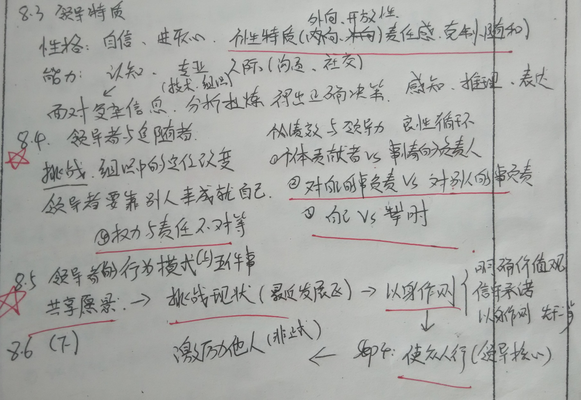 8.3 领导特质
外向、开放性
性格：自信、进取心、个性特质(内向、外向)责任感、克制、随和)
能力：认知、专业、人际(沟通、社交)
(技术、组织)
面对复杂信息，分析提炼 得出正确决策、感知、推理、表达
8.4. 领导者与追随者. 从绩效与领导力 良性循环
挑战：组织中的定位改变 ①个体贡献者vs 事情的负责人
领导者要靠别人来成就自己. ②对自己的事负责 vs 对别人的事负责
④权力与责任不对等 ③ 自己 vs 时
8.5 领导者的行为模式(上)五件事
明确价值观
共享愿景. → 挑战现状(最近发展区) → 以身作则
信守承诺
以身作则
8.6 (下) 激励他人(非正式) ← 使众人行(领导核心)